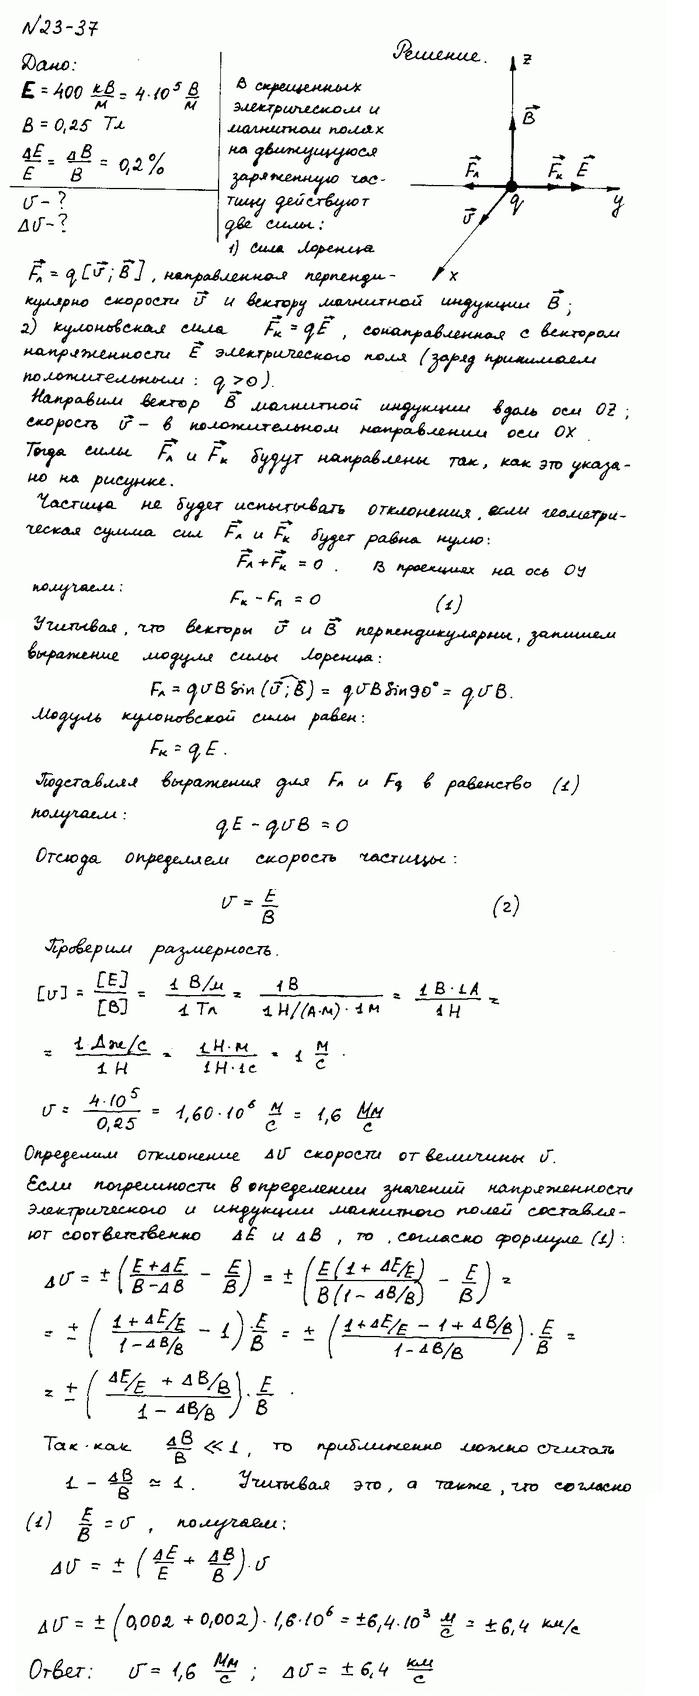 №23-37
Дано:
E = 400 кВ/м = 4·10⁵ В/м
B = 0,25 Тл
ΔE/E = ΔB/B = 0,2%
υ - ?
Δυ - ?
Решение.
В скрещенных
электрическом и
магнитном полях
на движущуюся
заряженную час-
тицу действуют
две силы:
1) сила Лоренца
z
B⃗
F⃗л
F⃗к
E⃗
υ⃗
q
y
x
F⃗л = q[υ⃗; B⃗], направленная перпенди-
кулярно скорости υ⃗ и вектору магнитной индукции B⃗;
2) кулоновская сила F⃗к = qE⃗, сонаправленная с вектором
напряженности E⃗ электрического поля (заряд принимаем
положительным: q > 0).
Направим вектор B⃗ магнитной индукции вдоль оси OZ;
скорость υ⃗ - в положительном направлении оси OX.
Тогда силы F⃗л и F⃗к будут направлены так, как это указа-
но на рисунке.
Частица не будет испытывать отклонения, если геометри-
ческая сумма сил F⃗л и F⃗к будет равна нулю:
F⃗л + F⃗к = 0. В проекциях на ось OY
получаем: Fк - Fл = 0 (1)
Учитывая, что векторы υ⃗ и B⃗ перпендикулярны, запишем
выражение модуля силы Лоренца:
Fл = qυB sin(υ⃗; B⃗) = qυB sin90° = qυB.
Модуль кулоновской силы равен:
Fк = qE.
Подставляя выражения для Fл и Fq в равенство (1)
получаем: qE - qυB = 0
Отсюда определяем скорость частицы:
υ = E/B (2)
Проверим размерность.
[υ] = [E]/[B] = 1 В/м / 1 Тл = 1В / 1Н/(А·м)·1м = 1В·1А / 1Н =
= 1 Дж/с / 1 Н = 1Н·м / 1Н·1с = 1 м/с.
υ = 4·10⁵ / 0,25 = 1,60·10⁶ м/с = 1,6 Мм/с
Определим отклонение Δυ скорости от величины υ.
Если погрешности в определении значений напряженности
электрического и индукции магнитного полей составля-
ют соответственно ΔE и ΔB, то, согласно формуле (1):
Δυ = ± ((E+ΔE)/(B-ΔB) - E/B) = ± (E(1+ΔE/E)/B(1-ΔB/B) - E/B) =
= ± ((1+ΔE/E)/(1-ΔB/B) - 1)·E/B = ± ((1+ΔE/E - 1 + ΔB/B)/(1-ΔB/B))·E/B =
= ± ((ΔE/E + ΔB/B)/(1 - ΔB/B))·E/B.
Так как ΔB/B ≪ 1, то приближенно можно считать
1 - ΔB/B ≃ 1. Учитывая это, а также, что согласно
(1) E/B = υ, получаем:
Δυ = ± (ΔE/E + ΔB/B)·υ
Δυ = ± (0,002 + 0,002)·1,6·10⁶ = ±6,4·10³ м/с = ±6,4 км/с
Ответ: υ = 1,6 Мм/с; Δυ = ±6,4 км/с